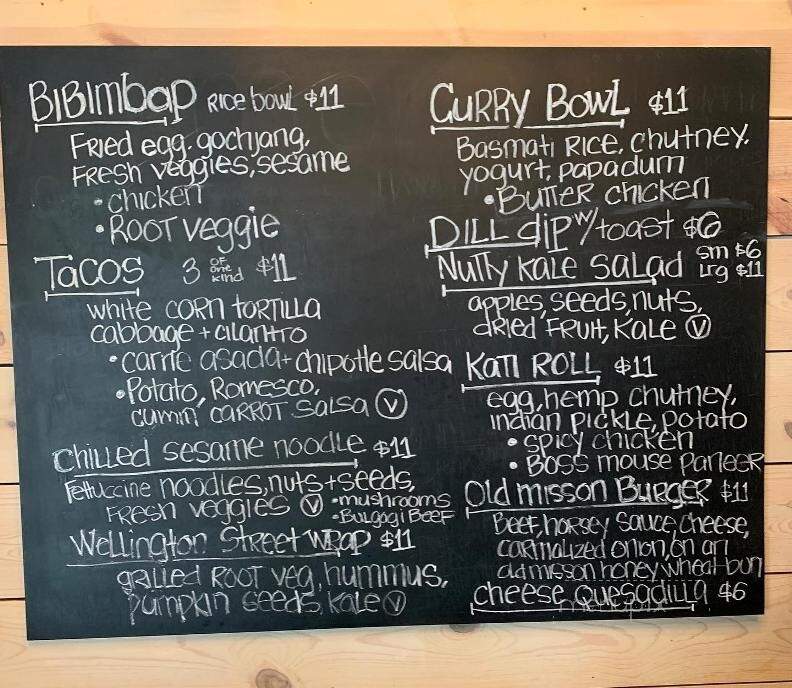 BiBimbap Rice bowl $11
FRied egg. gochjang,
FResh veggies, sesame
• chicken
• Root veggie
Tacos 3 of one kind $11
white corn tortilla
cabbage + cilantro
• carne asada + chipotle salsa
• Potato, Romesco,
cumin carrot salsa V
chilled sesame noodle $11
Fettuccine noodles, nuts + seeds,
Fresh veggies V • mushrooms
• Bulgogi Beef
Wellington Street Wrap $11
grilled root veg, hummus,
pumpkin seeds, kale V
Curry Bowl $11
Basmati Rice, chutney,
yogurt, papadum
• Butter chicken
Dill dip w/ toast $6
Nutty Kale Salad sm $6
Lrg $11
apples, seeds, nuts,
dried fruit, kale V
Kati Roll $11
egg, hemp chutney,
indian pickle, potato
• spicy chicken
• Boss mouse paneer
Old misson Burger $11
Beef, horsey sauce, cheese,
carmalized onion, on an
old misson honey wheat bun
cheese quesadilla $6